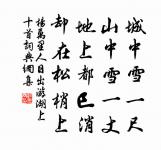 城中雪一尺
山中雪一丈
地上都已消
却在松梢上
楊萬里人日出游湖上
十首詞典網